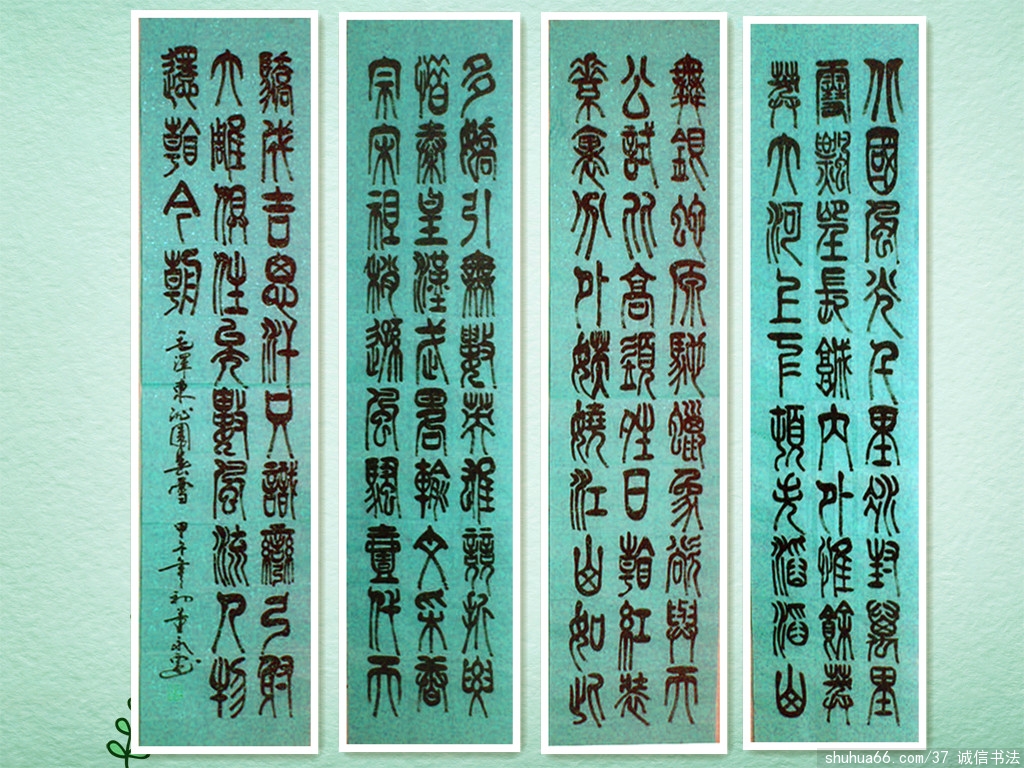 北國風光千里冰封萬里
雪飄望長城內外惟餘莽
莽大河上下頓失滔滔山
舞銀蛇原馳蠟象欲與天
公試比高須晴日看紅裝
素裹分外妖嬈江山如此
多嬌引無數英雄競折腰
惜秦皇漢武略輸文采唐
宗宋祖稍遜風騷壹代天
驕成吉思汗只識彎弓射
大雕俱往矣數風流人物
還看今朝 毛澤東沁園春雪 甲午年初
shuhua66.com/37 诚信书法